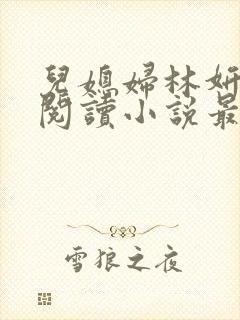 兒媳婦林妍
閱讀小說最
雪狼之夜